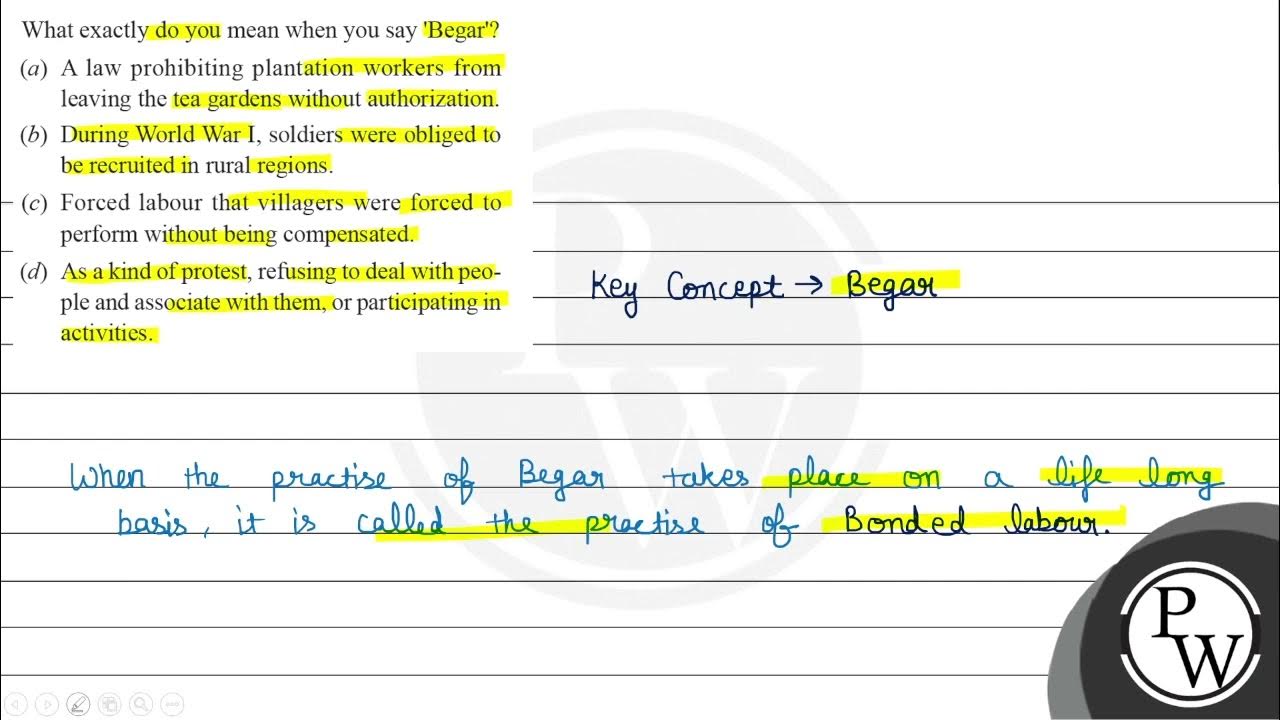 What exactly do you mean when you say 'Begar'?
(a) A law prohibiting plantation workers from
leaving the tea gardens without authorization.
(b) During World War I, soldiers were obliged to
be recruited in rural regions.
(c) Forced labour that villagers were forced to
perform without being compensated.
(d) As a kind of protest, refusing to deal with peo-
ple and associate with them, or participating in
activities.
Key Concept → Begar
When the practise of Begar takes place on a life long
basis, it is called the practise of Bonded labour.
P
W
P
W